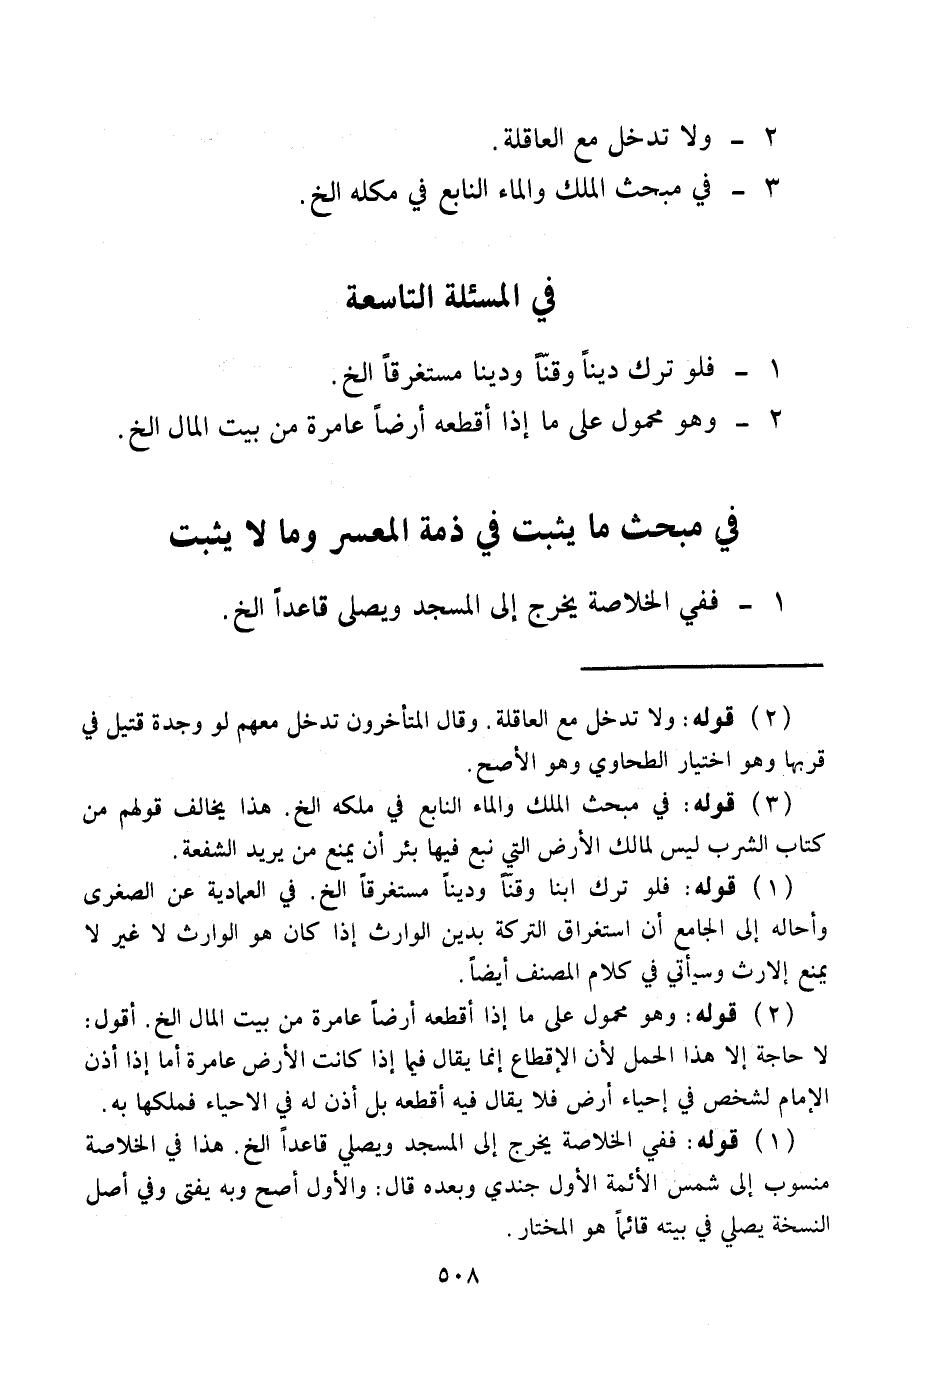 ٢ - ولا تدخل مع العاقلة.
٣ - في مبحث الملك والماء النابع في مكله الخ.
في المسئلة التاسعة
١ - فلو ترك ديناً وقنّاً ودينا مستغرقاً الخ.
٢ - وهو محمول على ما إذا أقطعه أرضاً عامرة من بيت المال الخ.
في مبحث ما يثبت في ذمة المعسر وما لا يثبت
١ - ففي الخلاصة يخرج إلى المسجد ويصلى قاعداً الخ.
(٢) قوله: ولا تدخل مع العاقلة. وقال المتأخرون تدخل معهم لو وجدة قتيل في
قربها وهو اختيار الطحاوي وهو الأصح.
(٣) قوله: في مبحث الملك والماء النابع في ملكه الخ. هذا يخالف قولهم من
كتاب الشرب ليس لمالك الأرض التي نبع فيها بئر أن يمنع من يريد الشفعة.
(١) قوله: فلو ترك ابنا وقنّاً وديناً مستغرقاً الخ. في العمادية عن الصغرى
وأحاله إلى الجامع أن استغراق التركة بدين الوارث إذا كان هو الوارث لا غير لا
يمنع إلارث وسيأتي في كلام المصنف أيضاً.
(٢) قوله: وهو محمول على ما إذا أقطعه أرضاً عامرة من بيت المال الخ. أقول:
لا حاجة إلا هذا الحمل لأن الإقطاع إنما يقال فيما إذا كانت الأرض عامرة أما إذا أذن
الإمام لشخص في إحياء أرض فلا يقال فيه أقطعه بل أذن له في الاحياء فملكها به.
(١) قوله: ففي الخلاصة يخرج إلى المسجد ويصلي قاعداً الخ. هذا في الخلاصة
منسوب إلى شمس الأئمة الأول جندي وبعده قال: والأول أصح وبه يفتى وفي أصل
النسخة يصلي في بيته قائماً هو المختار.
٥٠٨